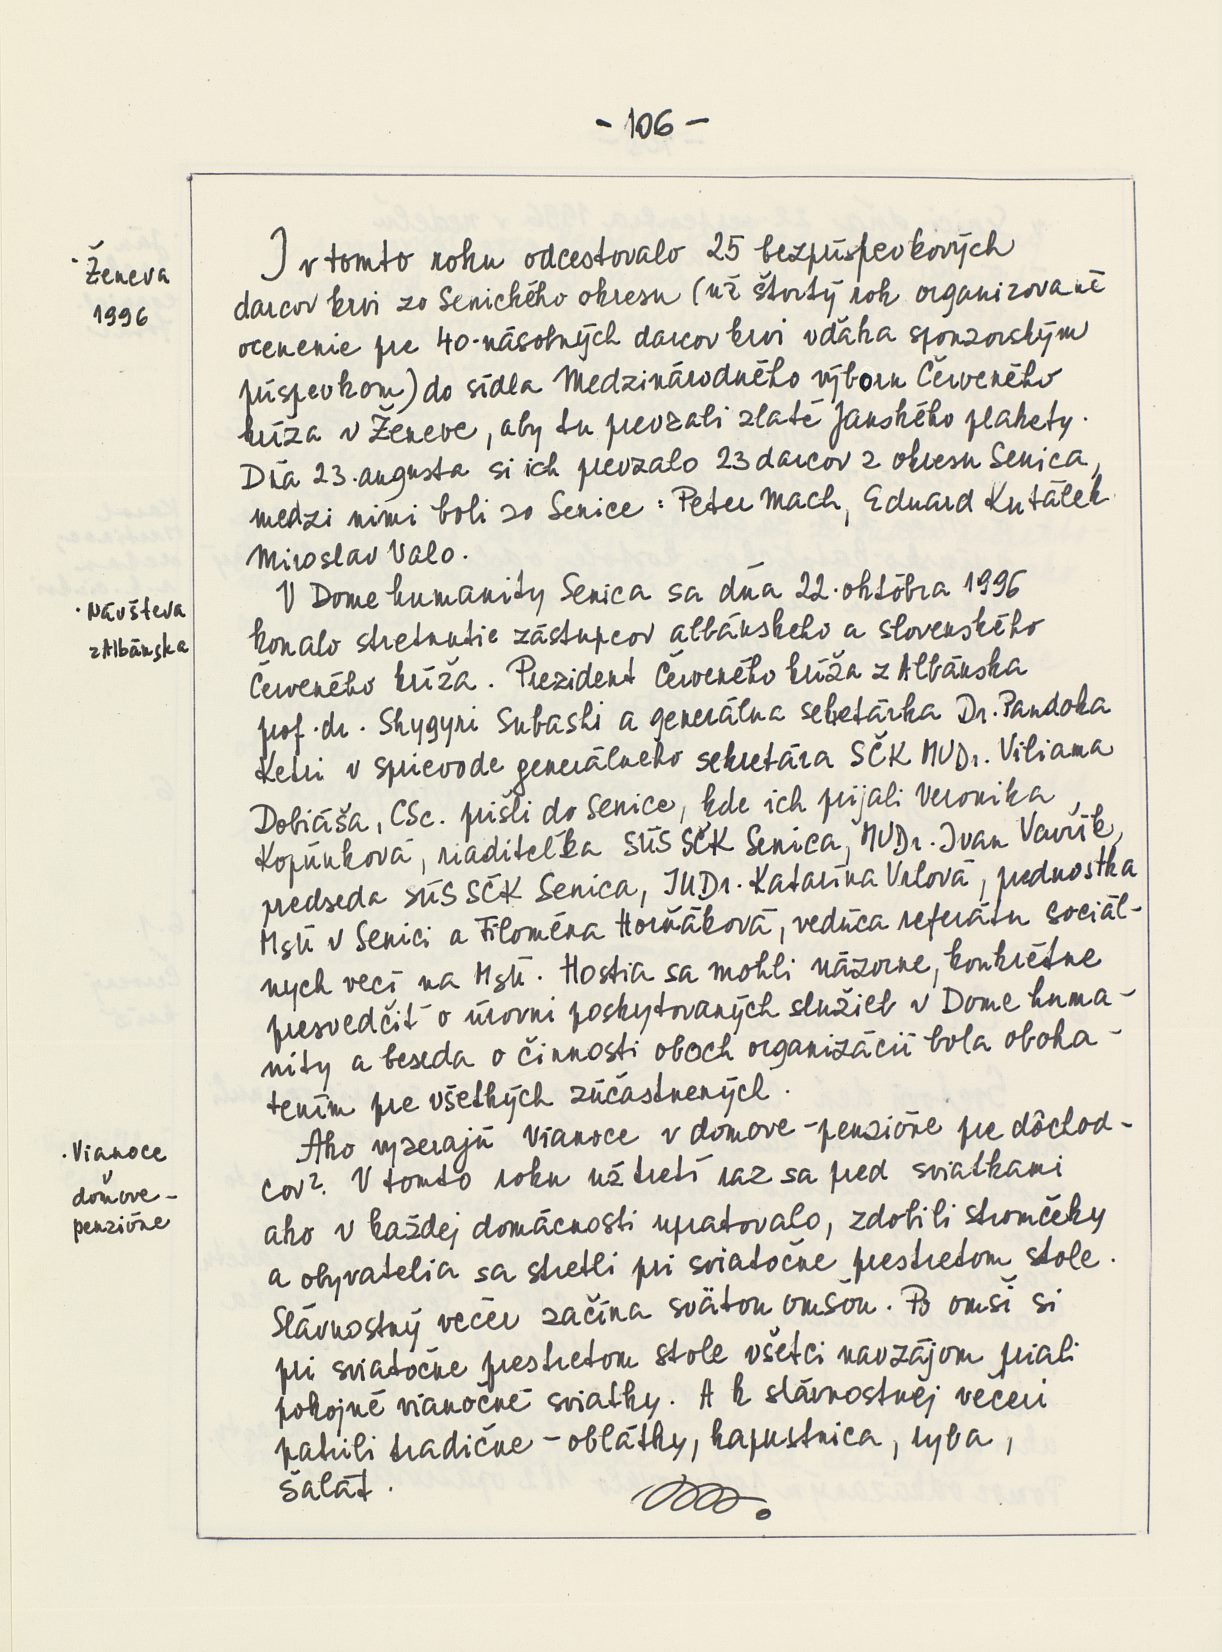 - 106 -
· Ženeva
1996
I v tomto roku odcestovalo 25 bezpríspevkových
darcov krvi zo Senického okresu (už štvrtý rok organizované
ocenenie pre 40-násobných darcov krvi vďaka sponzorským
príspevkom) do sídla Medzinárodného výboru Červeného
kríža v Ženeve, aby tu prevzali zlaté Janského plakety.
Dňa 23. augusta si ich prevzalo 23 darcov z okresu Senica,
medzi nimi boli zo Senice: Peter Mach, Eduard Kutálek
Miroslav Valo.
· Návšteva
z Albánska
V Dome humanity Senica sa dňa 22. októbra 1996
konalo stretnutie zástupcov albánskeho a slovenského
Červeného kríža. Prezident Červeného kríža z Albánska
prof. dr. Shygyri Subashi a generálna sekretárka Dr. Pandoka
Kerri v sprievode generálneho sekretára SČK MUDr. Viliama
Dobiáša, CSc. prišli do Senice, kde ich prijali Veronika
Kopúnková, riaditeľka SÚS SČK Senica, MUDr. Ivan Vavrík,
predseda SÚS SČK Senica, JUDr. Katarína Vrlová, prednostka
MsÚ v Senici a Filoména Horňáková, vedúca referátu sociál-
nych vecí na MsÚ. Hostia sa mohli názorne, konkrétne
presvedčiť o úrovni poskytovaných služieb v Dome huma-
nity a beseda o činnosti oboch organizácií bola oboha-
tením pre všetkých zúčastnených.
· Vianoce
v
domove-
penzióne
Ako vyzerajú Vianoce v domove-penzióne pre dôchod-
cov? V tomto roku už tretí raz sa pred sviatkami
ako v každej domácnosti upratovalo, zdobili stromčeky
a obyvatelia sa stretli pri sviatočne prestretom stole.
Slávnostný večer začína svätou omšou. Po omši si
pri sviatočne prestretom stole všetci navzájom priali
pokojné vianočné sviatky. A k slávnostnej večeri
patrili tradične - oblátky, kapustnica, ryba,
šalát.